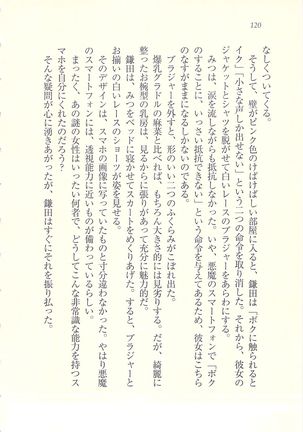 120
なしくついてくる。
そうして、壁がピンク色のけばけばしい部屋に入ると、鎌田は「ボクに触られると
イク」「小さな声しか出せない」という二つの命令を取り消した。それから、彼女の
ジャケットとシャツを脱がせて白いレースのブラジャーをあらわにする。
みつは、涙を流しながらも抵抗しなかった。いや、悪魔のスマートフォンで「ボク
のすることに、いっさい抵抗できない」という命令を与えてあるため、彼女はこちら
のなすがままになるしかないのである。
ブラジャーを外すと、形のいい二つのふくらみがこぼれ出た。
爆乳グラドルの麻菜と比べれば、もちろん大きさ的には見劣りする。だが、綺麗に
整ったお椀型の乳房は、見るからに張りがあって充分に魅力的だ。
鎌田は、みつをベッドに寝かせてスカートをめくりあげた。すると、ブラジャーと
お揃いの白いレースのショーツが姿を見せる。
そのデザインは、スマホの画像に写っていたものと寸分違わなかった。やはり悪魔
のスマートフォンには、透視能力に近いものが備わっているらしい。
まったく、あの謎の女性はいったい何者で、どうしてこんな非常識な能力を持つス
マホを自分にくれたのだろう?
そんな疑問が心に湧きあがったが、鎌田はすぐにそれを振り払った。